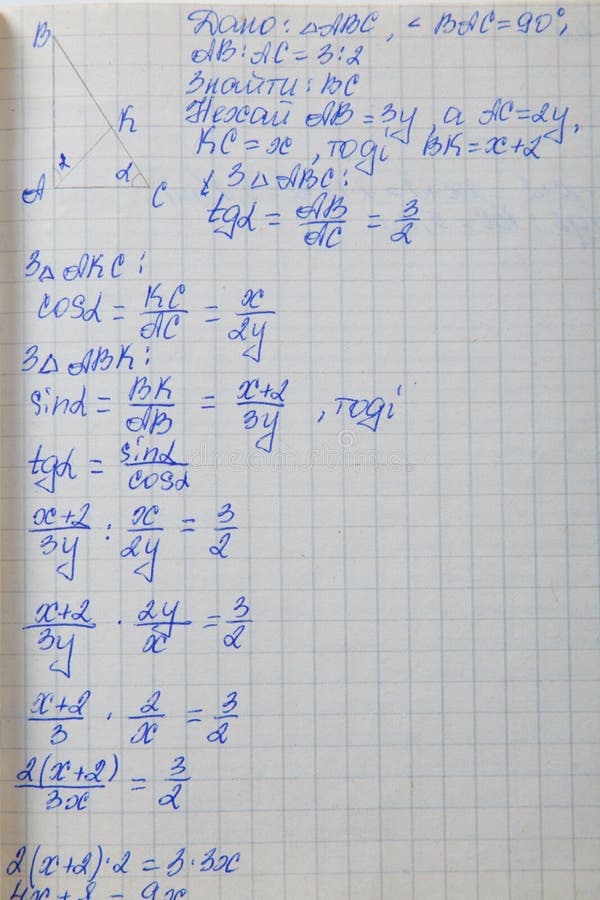 B
Дано: △ABC, ∠BAC=90°,
AB:AC=3:2
Знайти: BC
Нехай AB=3y, а AC=2y,
K
KC=x, тоді BK=x+2
2
A
α
C
З △ABC:
tgα = AB/AC = 3/2
З △AKC:
cosα = KC/AC = x/2y
З △ABK:
sinα = BK/AB = x+2/3y, тоді
tgα = sinα/cosα
dreamstime
x+2/3y : x/2y = 3/2
x+2/3y · 2y/x = 3/2
x+2/3 · 2/x = 3/2
2(x+2)/3x = 3/2
2(x+2)·2=3·3x
4x+8=9x